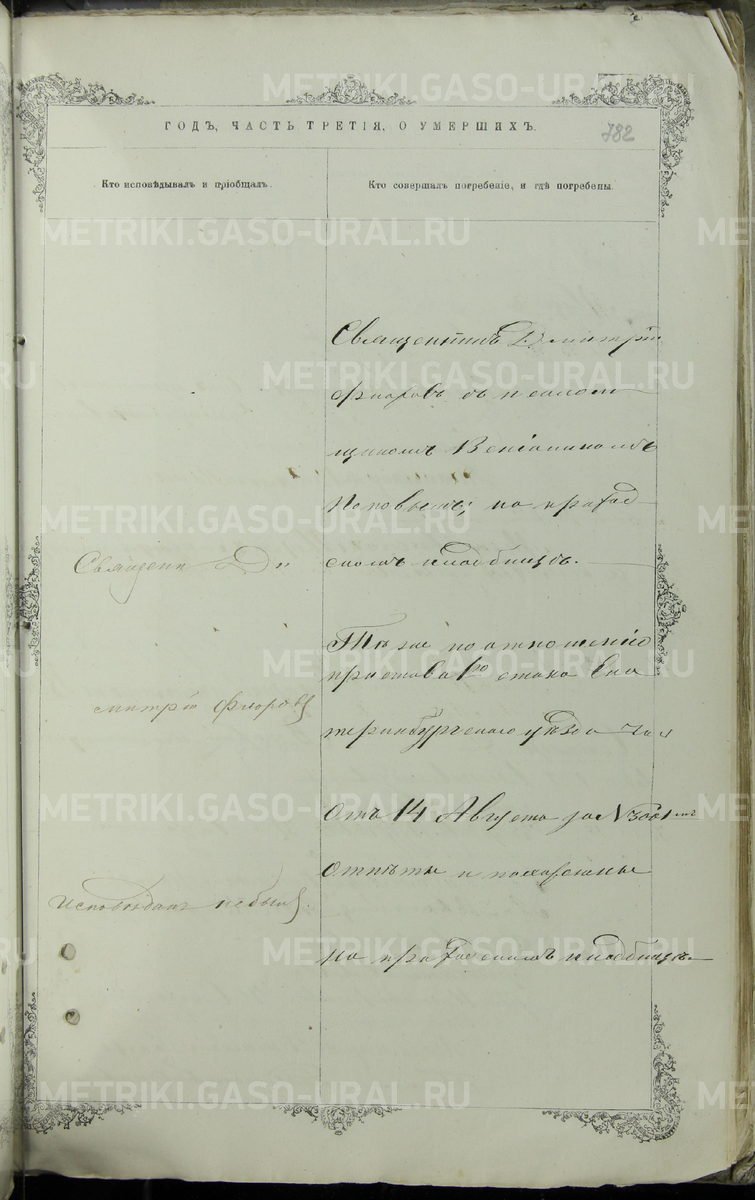 782
ГОДЪ, ЧАСТЬ ТРЕТІЯ, О УМЕРШИХЪ.
Кто исповѣдывалъ и пріобщалъ.
Кто совершалъ погребеніе, и гдѣ погребены.
Священн Ди
митрій Флоровъ
исповѣданъ небылъ.
Священникъ Димитрій
Флоровъ съ псалом
щикомъ Веніаминомъ
Поповымъ; на приход
скомъ кладбищѣ.
Тѣже по отношенію
пристава 1го стана Ека
теринбургскаго уѣзда
отъ 14 Августа за №
отпѣты и похоронены
на приходскомъ кладбищѣ.
METRIKI.GASO-URAL.RU